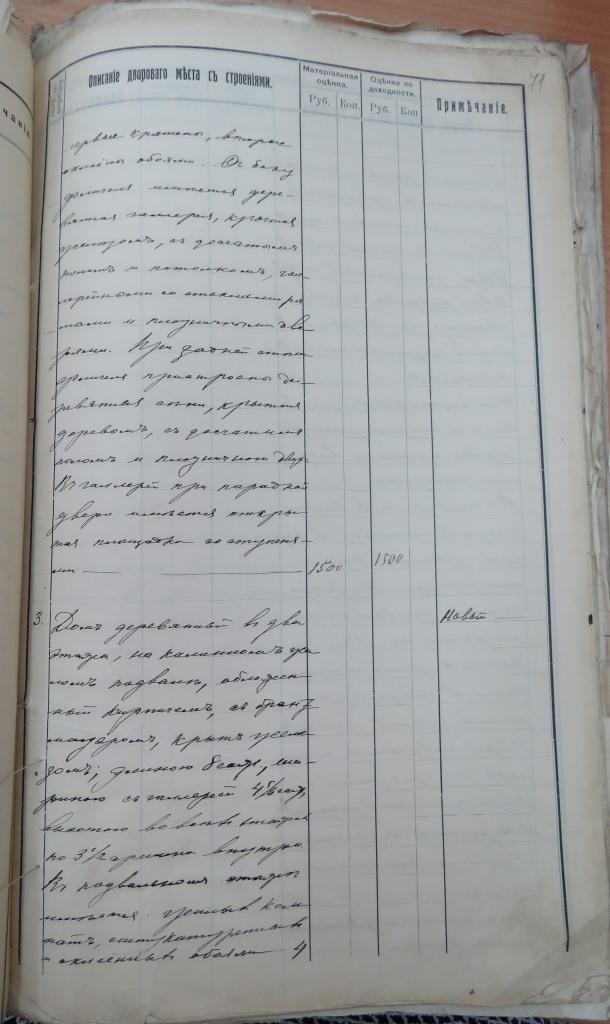 77
Описанiе двороваго мѣста съ строенiями.
Матерiальная оцѣнка.
Оцѣнка по доходности.
Примѣчанiе.
Руб. Коп. Руб. Коп
первые крашены, вторые
оклеены обоями. Съ боку
флигеля имѣется дере-
вянная галлерея, крытая
желѣзомъ, съ досчатымъ
поломъ и потолкомъ, гал-
лерейными со стеклами ра
мами и плотничными две
рями. При задней стѣнѣ
флигеля пристроены де-
ревянные сѣни, крытые
деревомъ, съ досчатымъ
поломъ и плотничною двер.
Къ галлереѣ при парадной
двери имѣется откры-
тая площадка со ступеня-
ми — 1500 1500
3. Домъ деревянный въ два Новый
этажа, на каменномъ жи
ломъ подвалѣ, обложен-
ный кирпичемъ, съ бранд
мауеромъ, крытъ желѣ
зомъ; длиною 8 саж., ши-
риною съ галлереей 4 5/6 саж,
высотою во всѣхъ этажахъ
по 3 1/2 аршина внутри.
Въ подвальномъ этажѣ
имѣется: жилыхъ ком
натъ, оштукатуренныхъ
и оклеенныхъ обоями 4